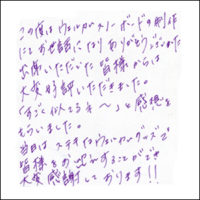 この度はウェルカムボードの制作
にてお世話になりありがとうございました
出席いただいた皆様からは
大変好評でいただきました。
「すごく似てるネ〜」と感想を
もらいました。
当日はステキなウェルカムグッズで
皆様をお迎えすることができ
大変感謝しております!!